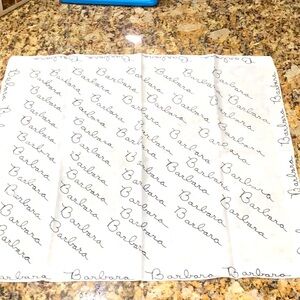 Barbara Barbara Barbara Barbara Barbara
Barbara Barbara Barbara Barbara Barbara
Barbara Barbara Barbara Barbara Barbara
Barbara Barbara Barbara Barbara Barbara
Barbara Barbara Barbara Barbara Barbara
Barbara Barbara Barbara Barbara Barbara
Barbara Barbara Barbara Barbara Barbara
Barbara Barbara Barbara Barbara Barbara
Barbara Barbara Barbara Barbara Barbara
Barbara Barbara Barbara Barbara
Barbara Barbara Barbara Barbara Barbara